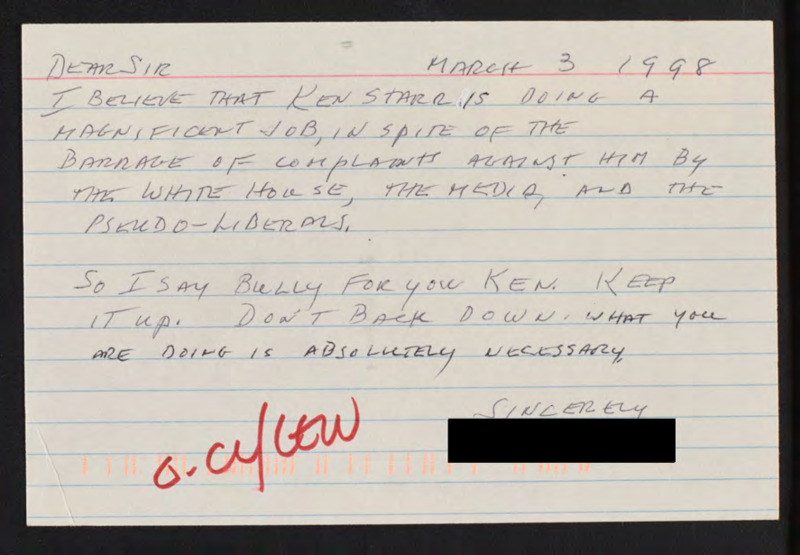 DEAR SIR MARCH 3 1998
I BELIEVE THAT KEN STARR IS DOING A
MAGNIFICENT JOB, IN SPITE OF THE
BARRAGE OF COMPLAINTS AGAINST HIM BY
THE WHITE HOUSE, THE MEDIA, AND THE
PSEUDO-LIBERALS.
SO I SAY BULLY FOR YOU KEN. KEEP
IT UP. DON'T BACK DOWN. WHAT YOU
ARE DOING IS ABSOLUTELY NECESSARY,
SINCERELY